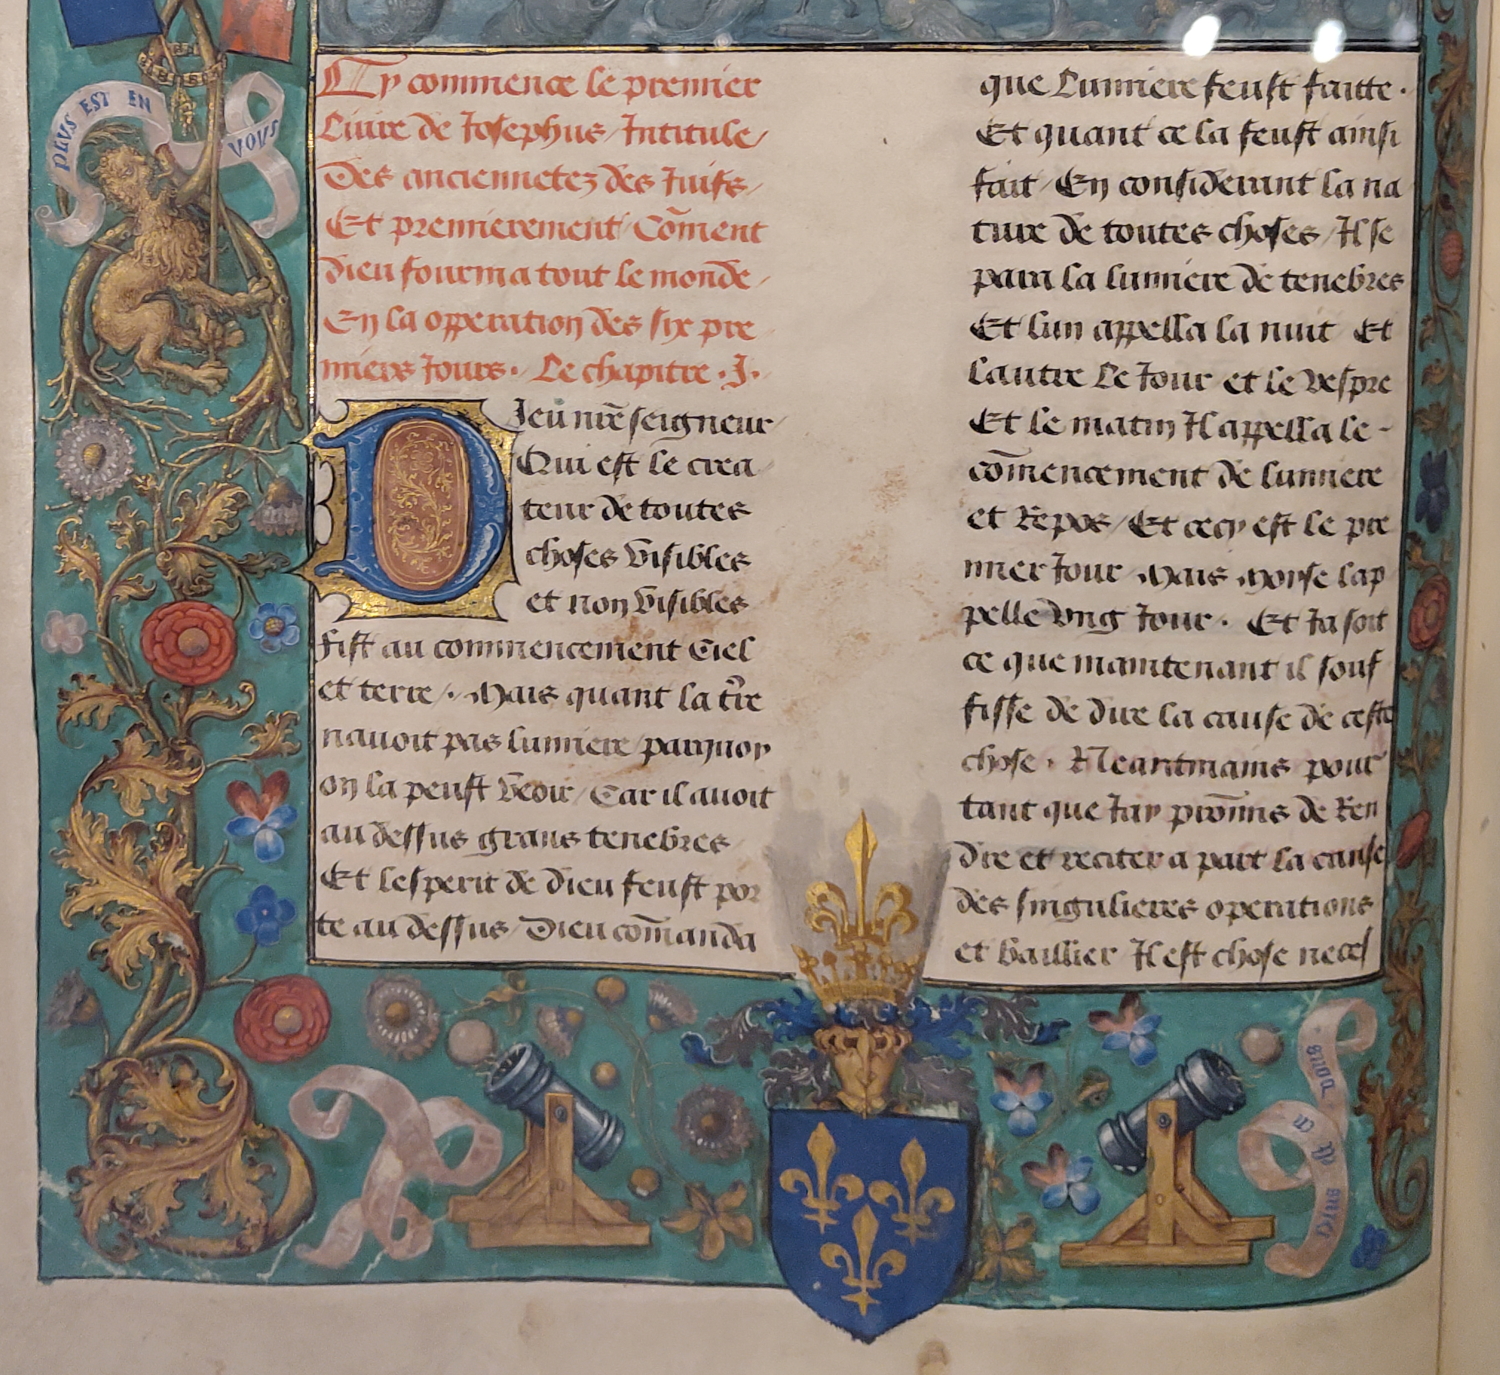 PLUS EST EN
VOUS
Cy commence le premier
Liure de Josephus / Intitule /
Des anciennetez des Juifs /
Et premierement / Cōment
dieu fourma tout le monde /
En la opperation des six pre
miers Jours · Le chapitre · J ·
Dieu nr̄e seigneur /
Qui est le crea /
teur de toutes
choses visibles
et non visibles
fist au commencement Ciel
et terre / · Mais quant la tr̄re
nauoit pas lumiere / parquoy
on la peust veoir / Car il auoit
au dessus grans tenebres /
Et lesperit de dieu feust por
te au dessus / Dieu cōmanda
que Lumiere feust faitte ·
Et quant ce la feust ainsi
fait / En considerant la na
ture de toutes choses / Il se
para la lumiere de tenebres
Et lun appella la nuit Et
lautre Le Jour et le vespre
Et le matin Il appella le -
cōmencement de lumiere
et Repos / Et cecy est le pre
mier Jour Mais Moyse lap
pelle vng Jour · Et Ja soit
ce que maintenant il souf
fisse de dire la cause de ceste
chose · Neantmains pour
tant que Jay prōmis de Ren
dre et reciter a part la cause
des singulieres operations
et baillier Il est chose neces
Plus
vous